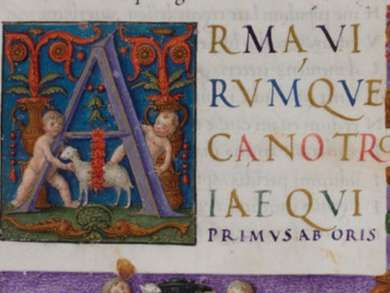 ARMA VI
RVMQVE
CANO TRO
IAE QVI
PRIMVS AB ORIS